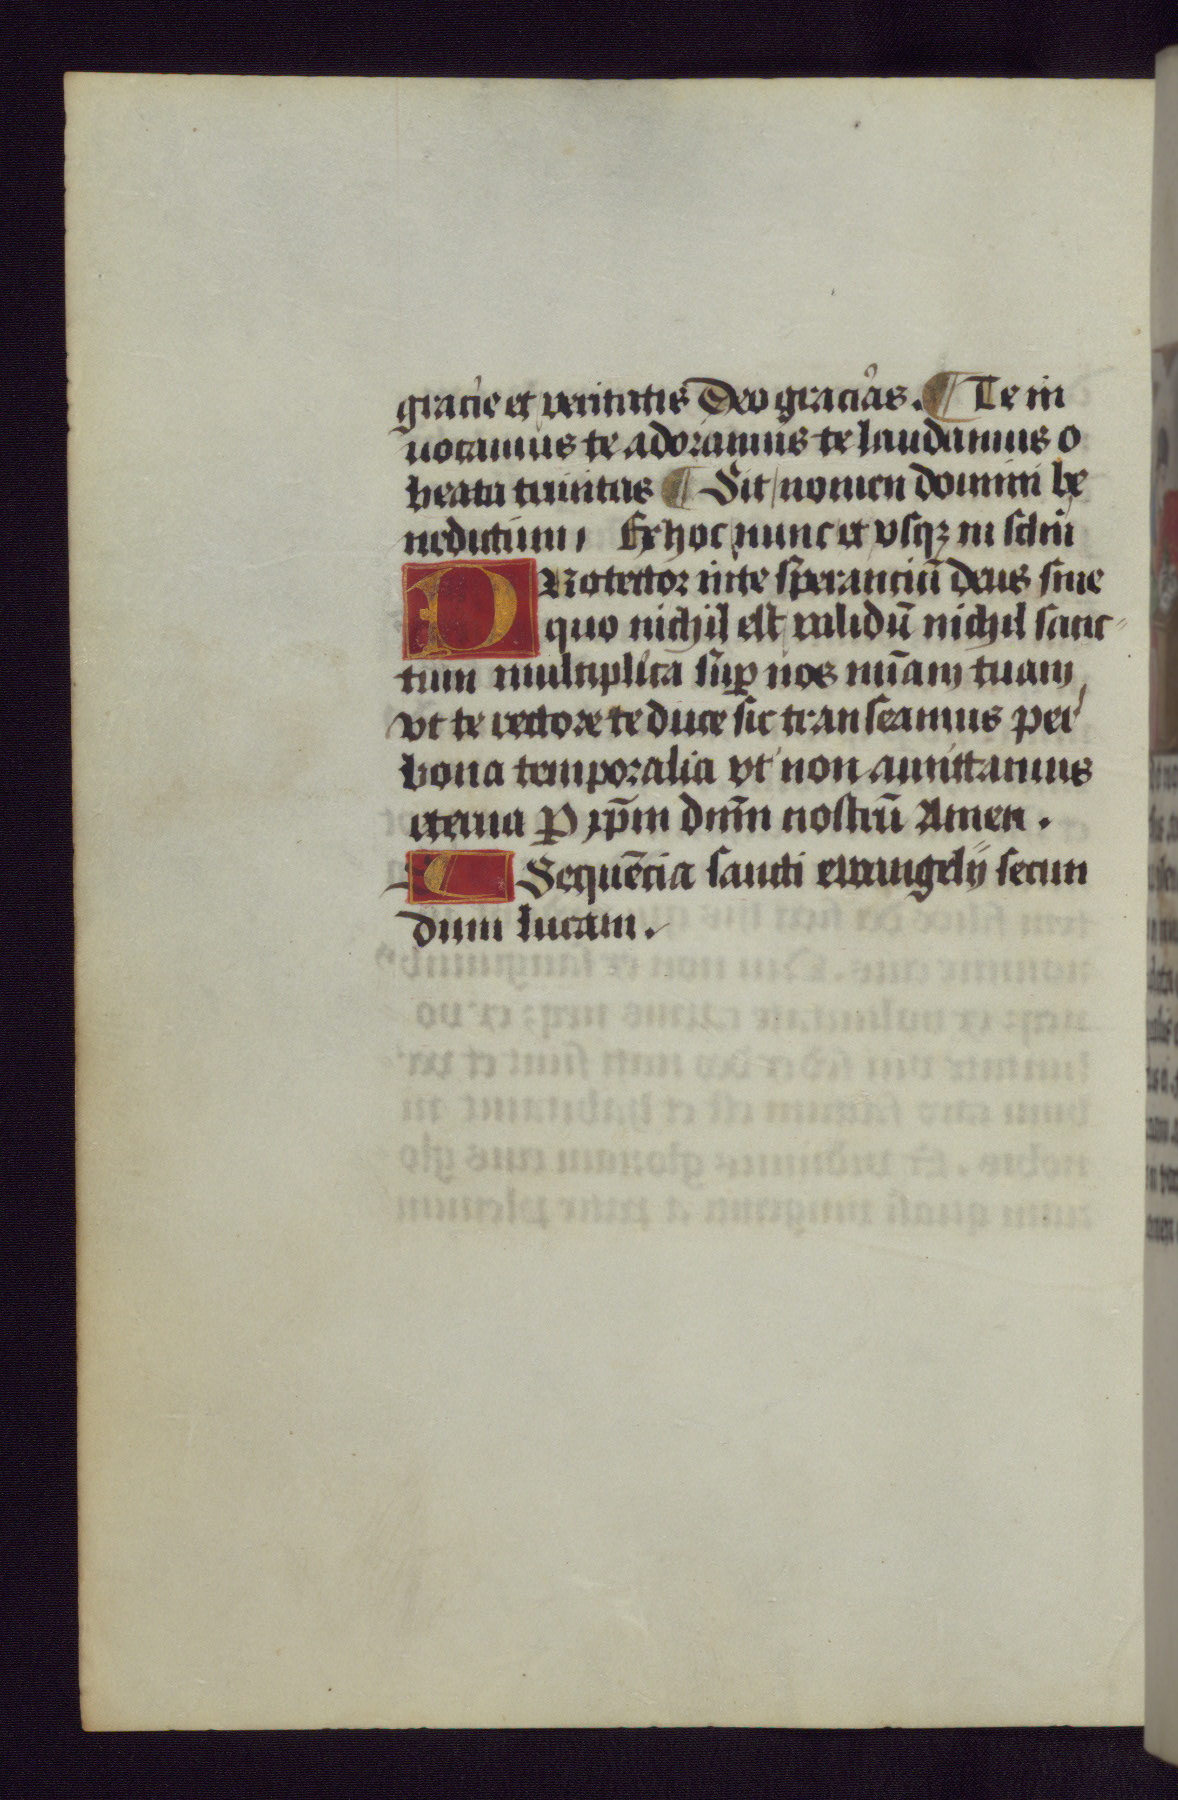 gracie et veritatis Deo gracias. ¶ Te in
uocamus te adoramus te laudamus o
beata trinitas ¶ Sit nomen domini be
nedictum, Ex hoc nunc et vsqꝫ in sclm̄
PRotector in te sperantiū deus sine
quo nichil est validū nichil sanc-
tum multiplica suꝑ nos miām tuam
vt te rectore te duce sic transeamus per
bona temporalia vt non amittamus
eterna P xp̄m dnm̄ nostrū Amen.
¶ Sequēcia sancti ewangelij secun
dum lucam.